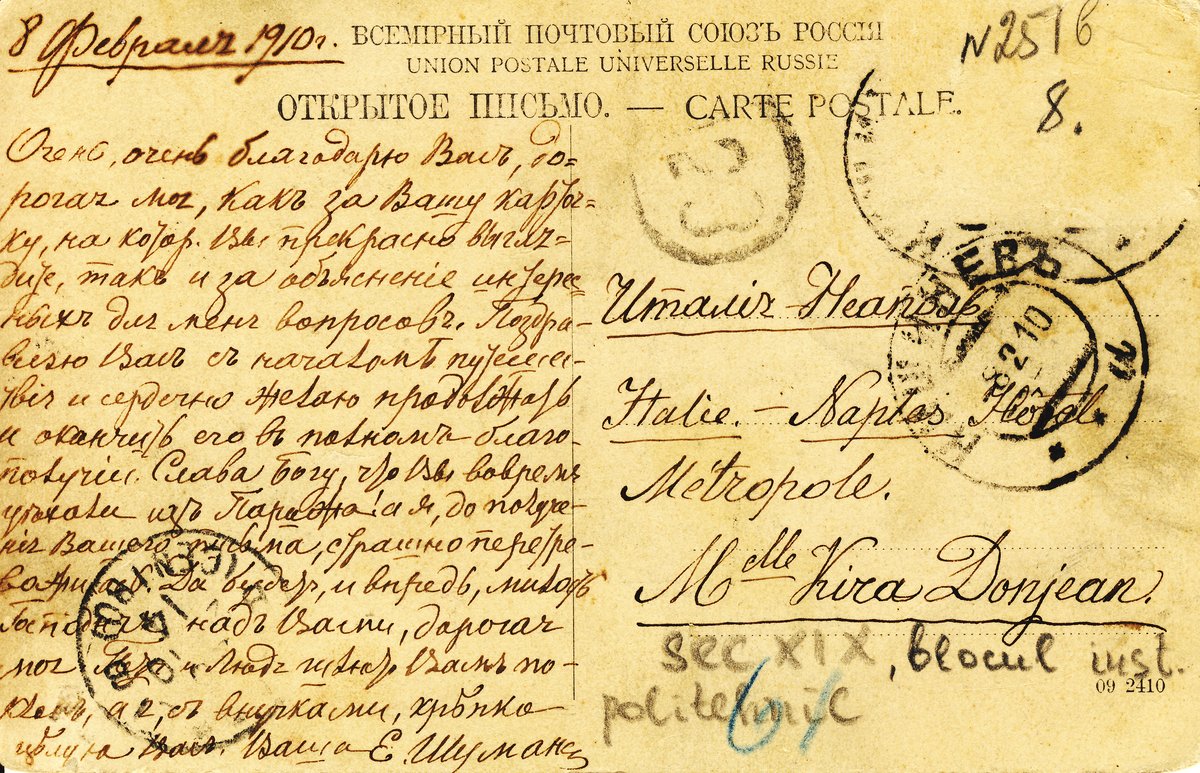 8 Февраля 1910 г.
ВСЕМІРНЫЙ ПОЧТОВЫЙ СОЮЗЪ РОССІЯ
UNION POSTALE UNIVERSELLE RUSSIE
ОТКРЫТОЕ ПИСЬМО. — CARTE POSTALE.
N 251 в
8.
Очень, очень благодарю Васъ, до-
рогая моя, какъ за Вашу карточ-
ку, на котор. Вы прекрасно выгля-
дите, такъ и за объясненіе интерес-
ныхъ для меня вопросовъ. Поздра-
вляю Васъ съ началомъ путешес-
твія и сердечно желаю продолжать
и окончить его въ полномъ благо-
получіи. Слава Богу, что Вы вовремя
уѣхали изъ Парижа! а я, до получе-
нія Вашего письма, страшно перетре-
вожилась. Да будетъ, и впредь, милость
Господня надъ Вами, дорогая
моя и Люля шлютъ Вамъ по-
клонъ, а я, съ внучками, крѣпко
цѣлую Васъ. Ваша Е. Шуманс
Италія – Неаполь
Italie. – Naples Hôtel
Métropole.
Mlle Kira Donjean.
sec XIX, blocul inst.
politehnic
61
09 2410
КИШИНЕВЪ
8 2 10